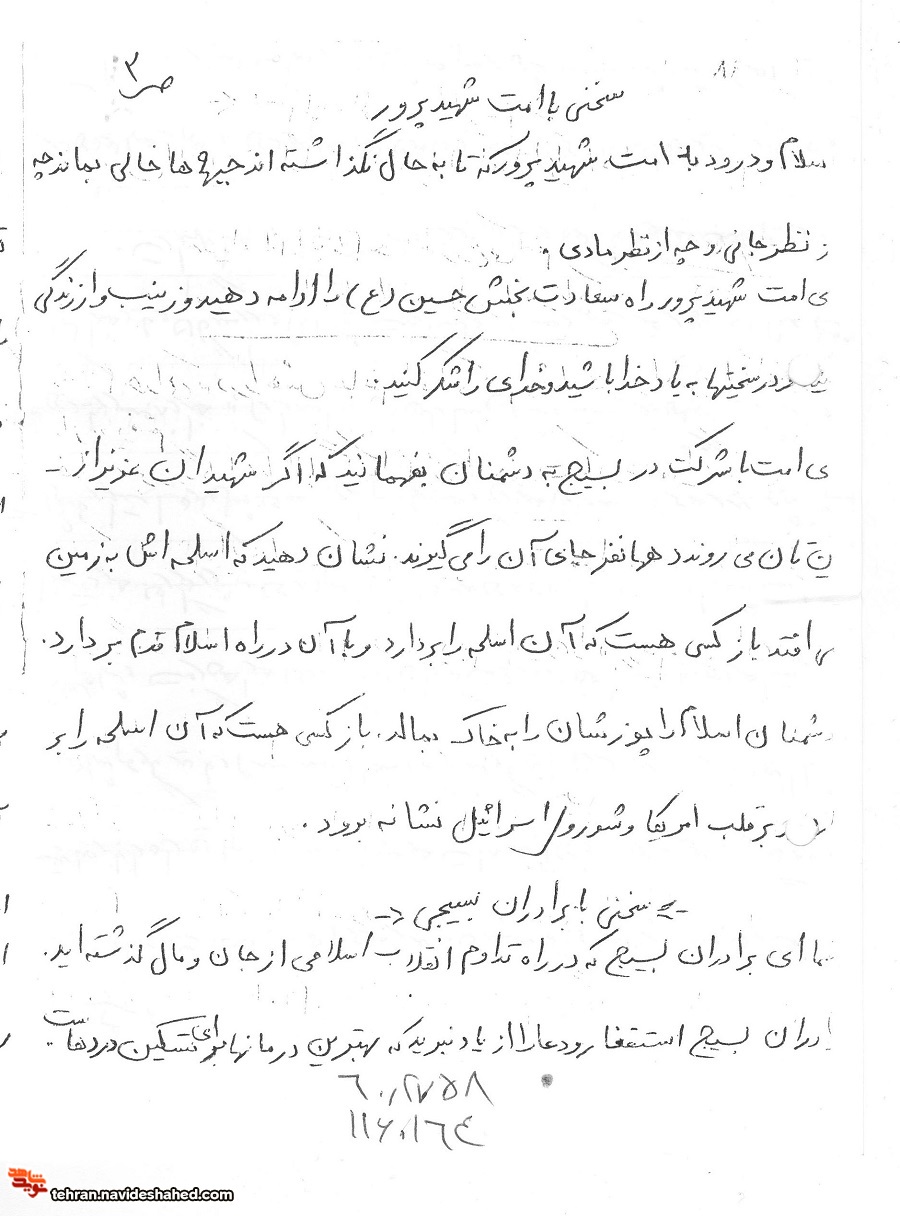 ص ۳
سخنی با امت شهیدپرور
سلام و درود به امت شهید پرور که تا به حال نگذاشته اند جبهه ها خالی بماند چه
ز نظر جانی و چه از نظر مادی.
ی امت شهید پرور راه سعادت بخش حسین (ع) را ادامه دهید و زینب وار زندگی
در سختیها به یاد خدا باشید و خدای را شکر کنید.
ی امت با شرکت در بسیج به دشمنان بفهمانید که اگر شهیدان عزیز از -
ن تان می روند دهها نفر جای آن را می گیرند. نشان دهید که اسلحه اش به زمین
ی افتد باز کسی هست که آن اسلحه را بردارد و با آن در راه اسلام قدم بر دارد.
شمنان اسلام را پوزشان را به خاک بمالد. باز کسی هست که آن اسلحه را بر
و بر قلب امریکا و شوروی اسرائیل نشانه برود.
سخنی با برادران بسیجی
ما ای برادران بسیج که در راه تداوم انقلاب اسلامی از جان و مال گذشته اید.
ادران بسیج استغفار و دعا را از یاد نبرید که بهترین درمانها برای تسکین دردهاست
۶۰۰۲۷۵۸
۱۱۶۰۱۶۴
tehran.navideshahed.com